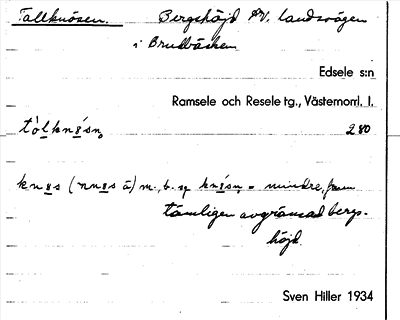 Tallknösen. Bergshöjd NV. landsvägen
i Brudbäcken
Edsele s:n
Ramsele och Resele tg., Västernorrl. l.
280
mindre,
tämligen avgränsad bergs-
höjd.
Sven Hiller 1934